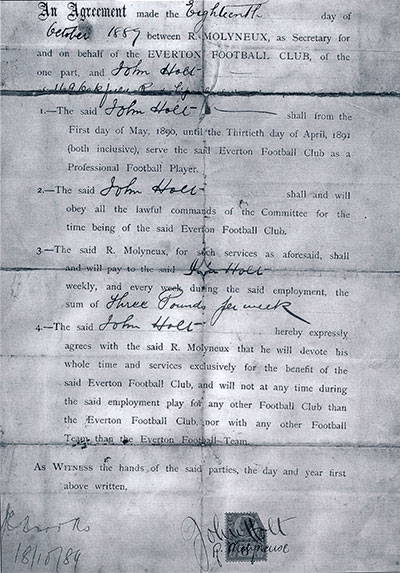 An Agreement made the Eighteenth day of
October 1889 between R. MOLYNEUX, as Secretary for
and on behalf of the EVERTON FOOTBALL CLUB, of the
one part, and John Holt
1.—The said John Holt shall from the
First day of May, 1890, until the Thirtieth day of April, 1891
(both inclusive), serve the said Everton Football Club as a
Professional Football Player.
2.—The said John Holt shall and will
obey all the lawful commands of the Committee for the
time being of the said Everton Football Club.
3.—The said R. Molyneux, for such services as aforesaid, shall
and will pay to the said John Holt
weekly, and every week during the said employment, the
sum of Three Pounds per week
4.—The said John Holt hereby expressly
agrees with the said R. Molyneux that he will devote his
whole time and services exclusively for the benefit of the
said Everton Football Club, and will not at any time during
the said employment play for any other Football Club than
the Everton Football Club, nor with any other Football
Team than the Everton Football Team.
As WITNESS the hands of the said parties, the day and year first
above written.
John Holt
R. Molyneux
18/10/89